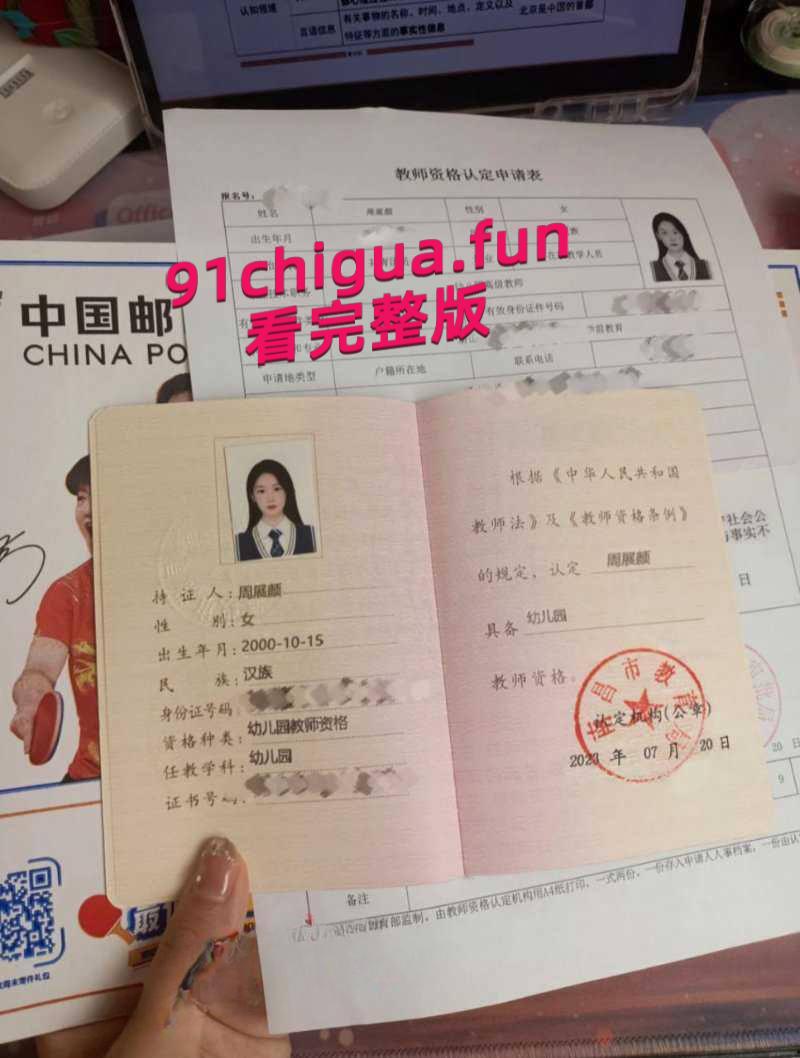 认知领域
言语信息
有关事物的名称、时间、地点、定义以及
特征等方面的事实性信息
北京是中国的首都
Office
教师资格认定申请表
报名号:
姓名
周展颜
性别
女
出生年月
91chigua.fun
看完整版
高级教师
有效身份证件号码
学前教育
申请地类型
户籍所在地
联系电话
中国邮
CHINA PO
社会公
事实不
日
根据《中华人民共和国
教师法》及《教师资格条例》
的规定, 认定 周展颜
具备 幼儿园
教师资格。
昌市教育局
认定机构(公章)
2023 年 07 月 20 日
持证人: 周展颜
性别: 女
出生年月: 2000-10-15
民族: 汉族
身份证号码:
资格种类: 幼儿园教师资格
任教学科: 幼儿园
证书号
20 日
9
备注
育部监制, 由教师资格认定机构用A4纸打印, 一式两份, 一份存入申请人人事档案, 一份由认